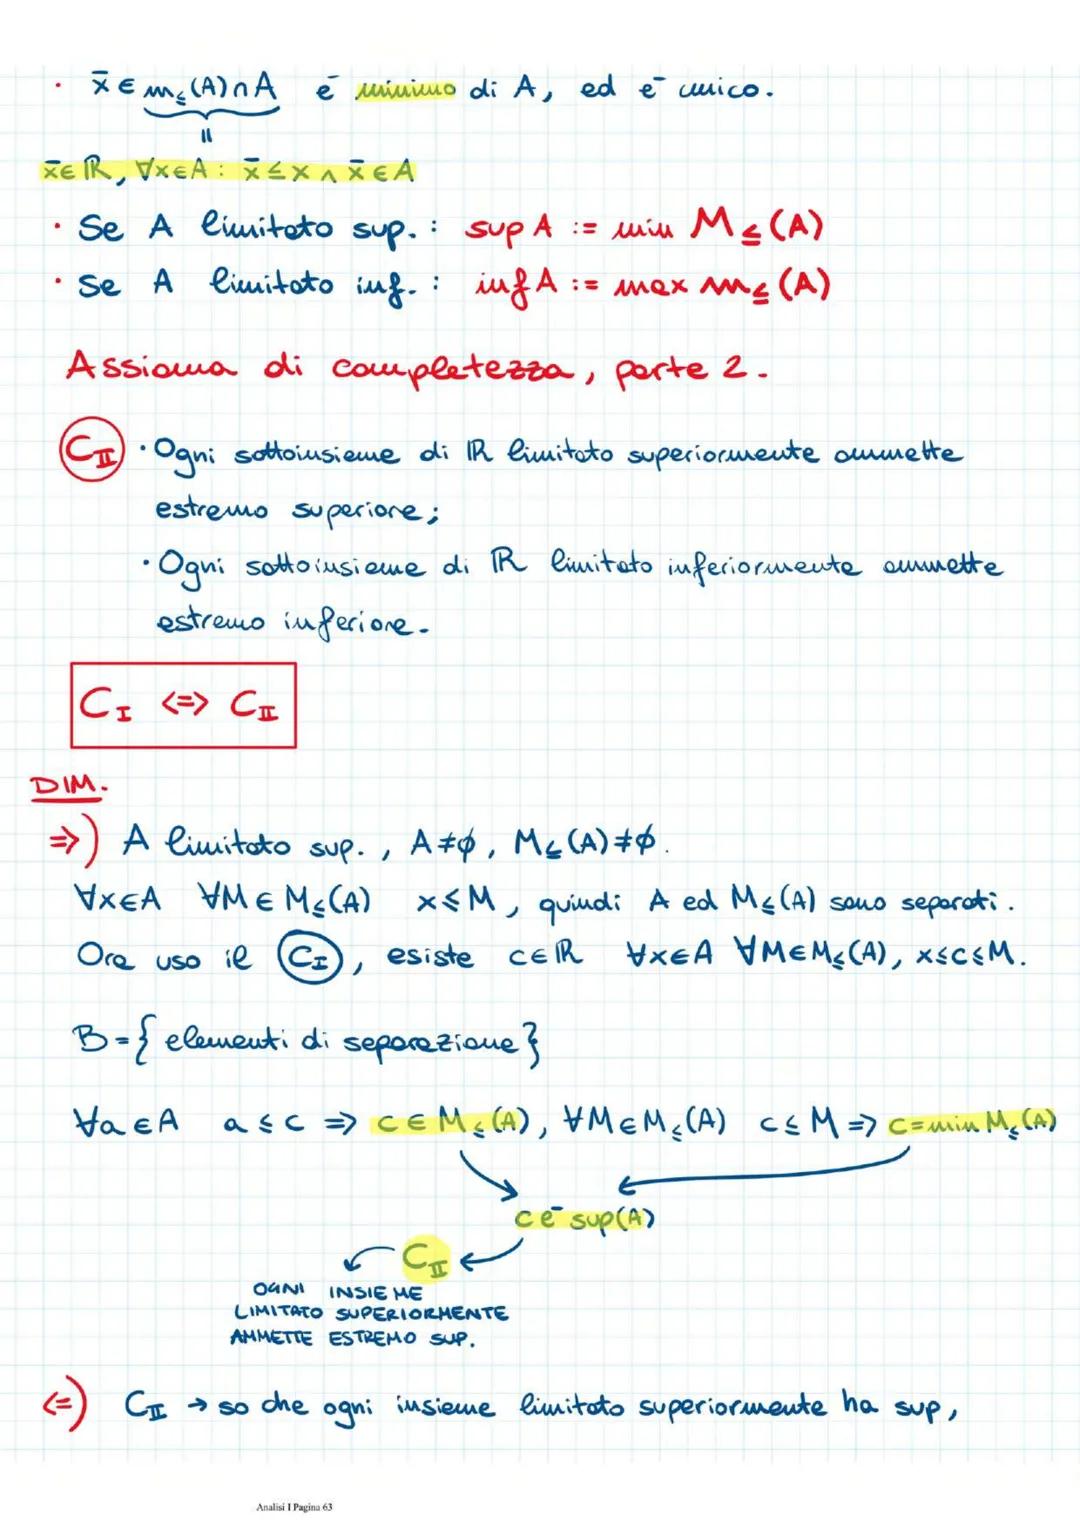 · x̄ ∈ m≤(A)∩A è minimo di A, ed è unico.
=
x̄∈ℝ, ∀x∈A: x̄≤x ∧ x̄∈A
· Se A limitato sup.: sup A := min M≤(A)
· Se A limitato inf.: inf A := max m≤(A)
Assioma di completezza, parte 2.
C_II · Ogni sottoinsieme di ℝ limitato superiormente ammette
estremo superiore;
· Ogni sottoinsieme di ℝ limitato inferiormente ammette
estremo inferiore.
C_I <=> C_II
DIM.
=>) A limitato sup., A≠∅, M≤(A)≠∅.
∀x∈A ∀M∈M≤(A) x≤M, quindi A ed M≤(A) sono separati.
Ora uso il C_I, esiste c∈ℝ ∀x∈A ∀M∈M≤(A), x≤c≤M.
B={elementi di separazione}
∀a∈A a≤c => c∈M≤(A), ∀M∈M≤(A) c≤M => c=min M≤(A)
c è sup(A)
C_II
OGNI INSIEME
LIMITATO SUPERIORMENTE
AMMETTE ESTREMO SUP.
<=) C_II → so che ogni insieme limitato superiormente ha sup,
Analisi I Pagina 63